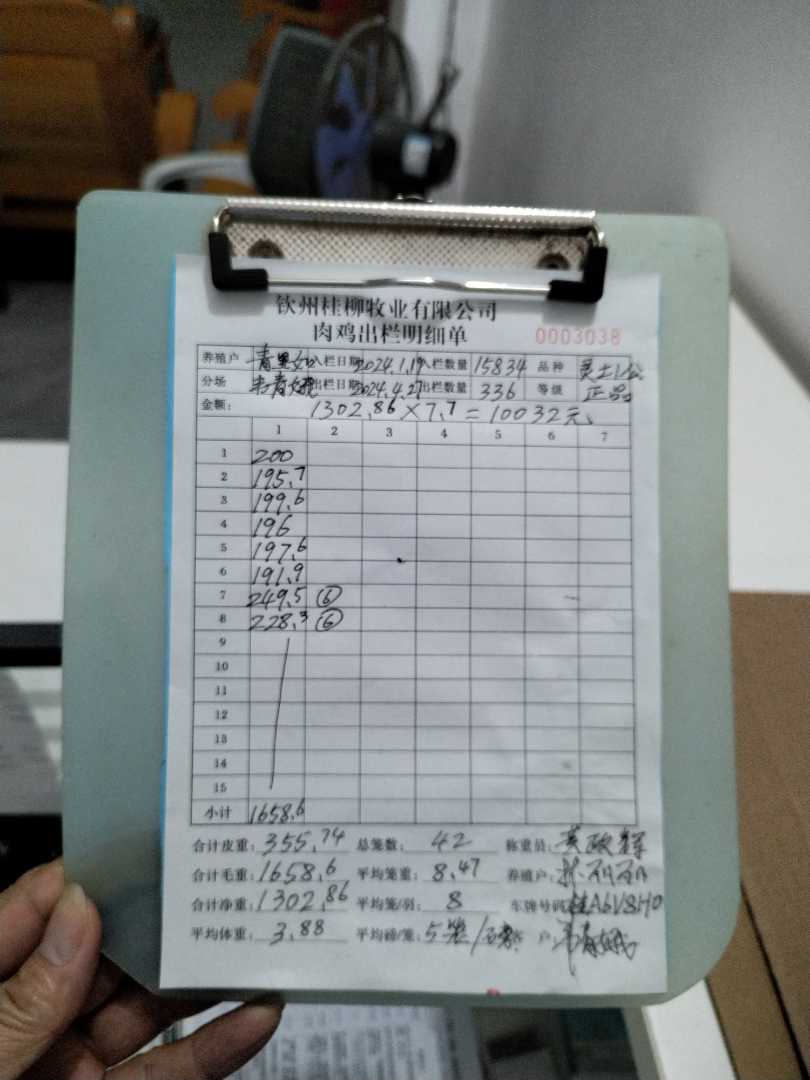 钦州桂柳牧业有限公司
肉鸡出栏明细单 0003038
养殖户 入栏日期 2024.1.19 入栏数量 15834 品种
分场 出栏日期 2024.4.27 出栏数量 336 等级 正品
金额: 1302.86×7.7=10032元
1 2 3 4 5 6 7
1 200
2 195.7
3 199.6
4 196
5 197.6
6 191.9
7 249.5 ⑥
8 228.3 ⑥
9
10
11
12
13
14
15
小计 1658.6
合计皮重: 355.74 总笼数: 42 称重员:
合计毛重: 1658.6 平均笼重: 8.47 养殖户:
合计净重: 1302.86 平均笼/羽: 8 车牌号码:
平均体重: 3.88 平均磅/笼: 5笼/磅 户: